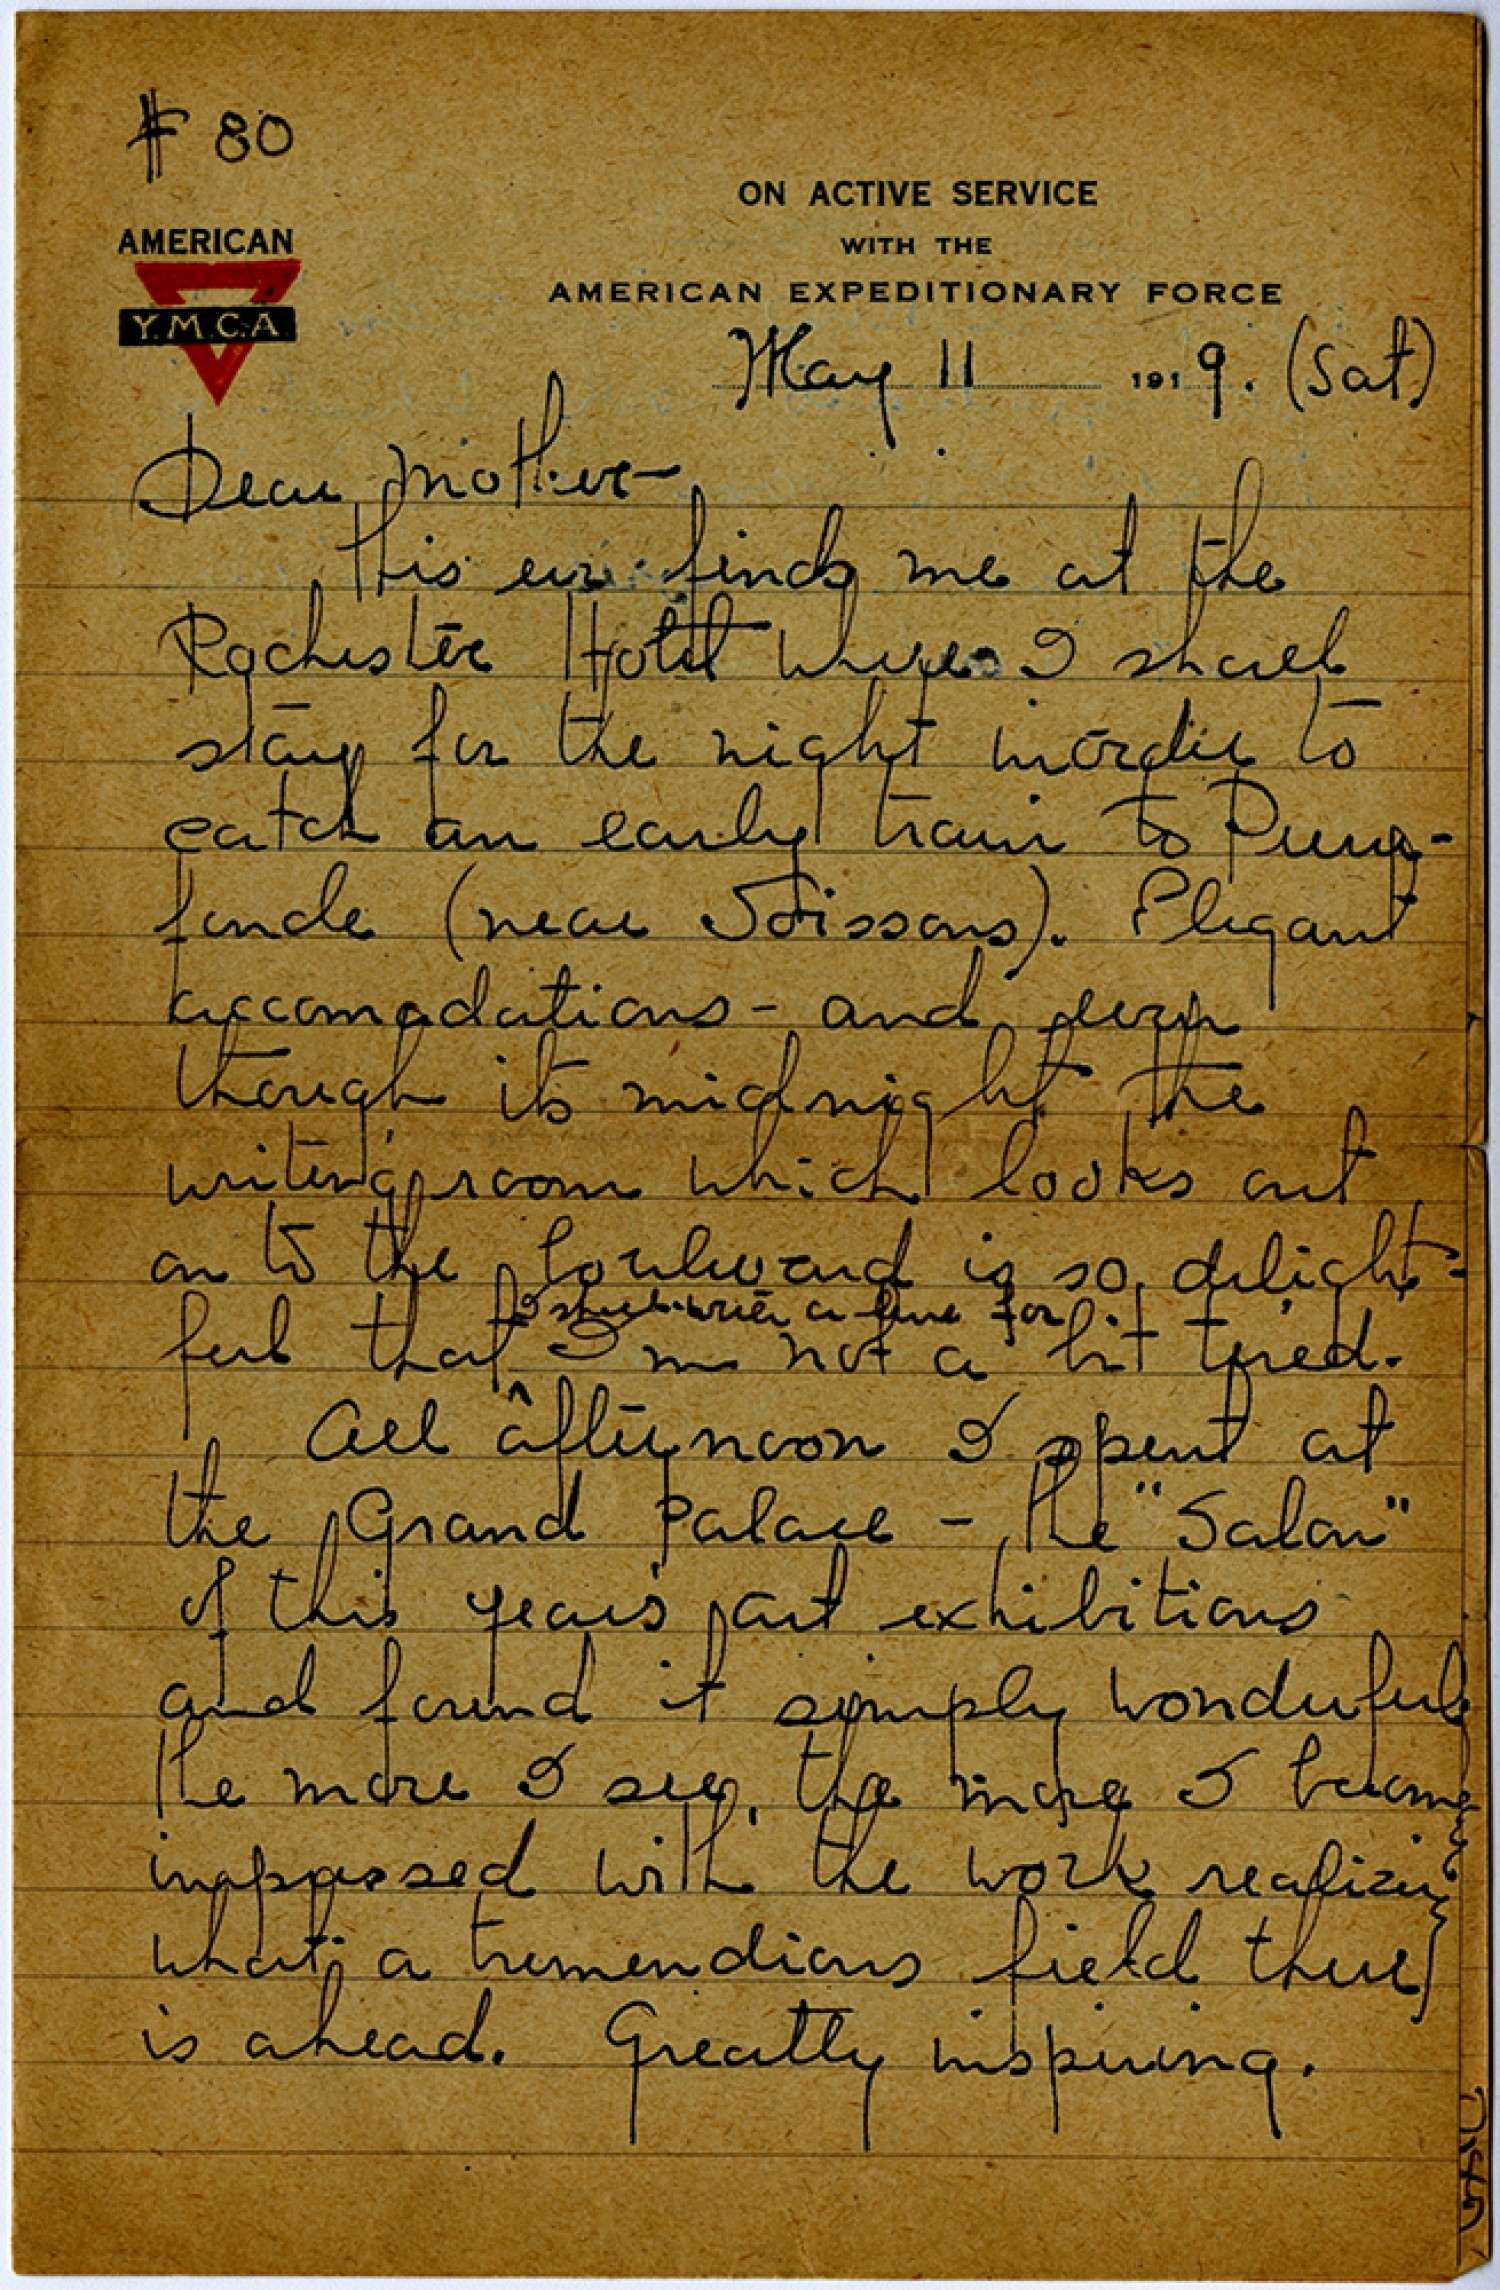 # 80
ON ACTIVE SERVICE
WITH THE
AMERICAN EXPEDITIONARY FORCE
AMERICAN
Y.M.C.A
May 11 1919. (Sat)
Dear Mother—
This eve finds me at the
Rochester Hotel where I shall
stay for the night in order to
catch an early train to
(near Soissons). Elegant
accomodations - and even
though its midnight the
writing room which looks out
on to the boulevard is so delight-
ful that I shall write a line for I'm not a bit tired.
All afternoon I spent at
the Grand Palace - the "Salon"
of this year's art exhibitions
and found it simply wonderful
The more I see, the more I become
impressed with the work realizing
what a tremendious field there
is ahead. Greatly inspiring.